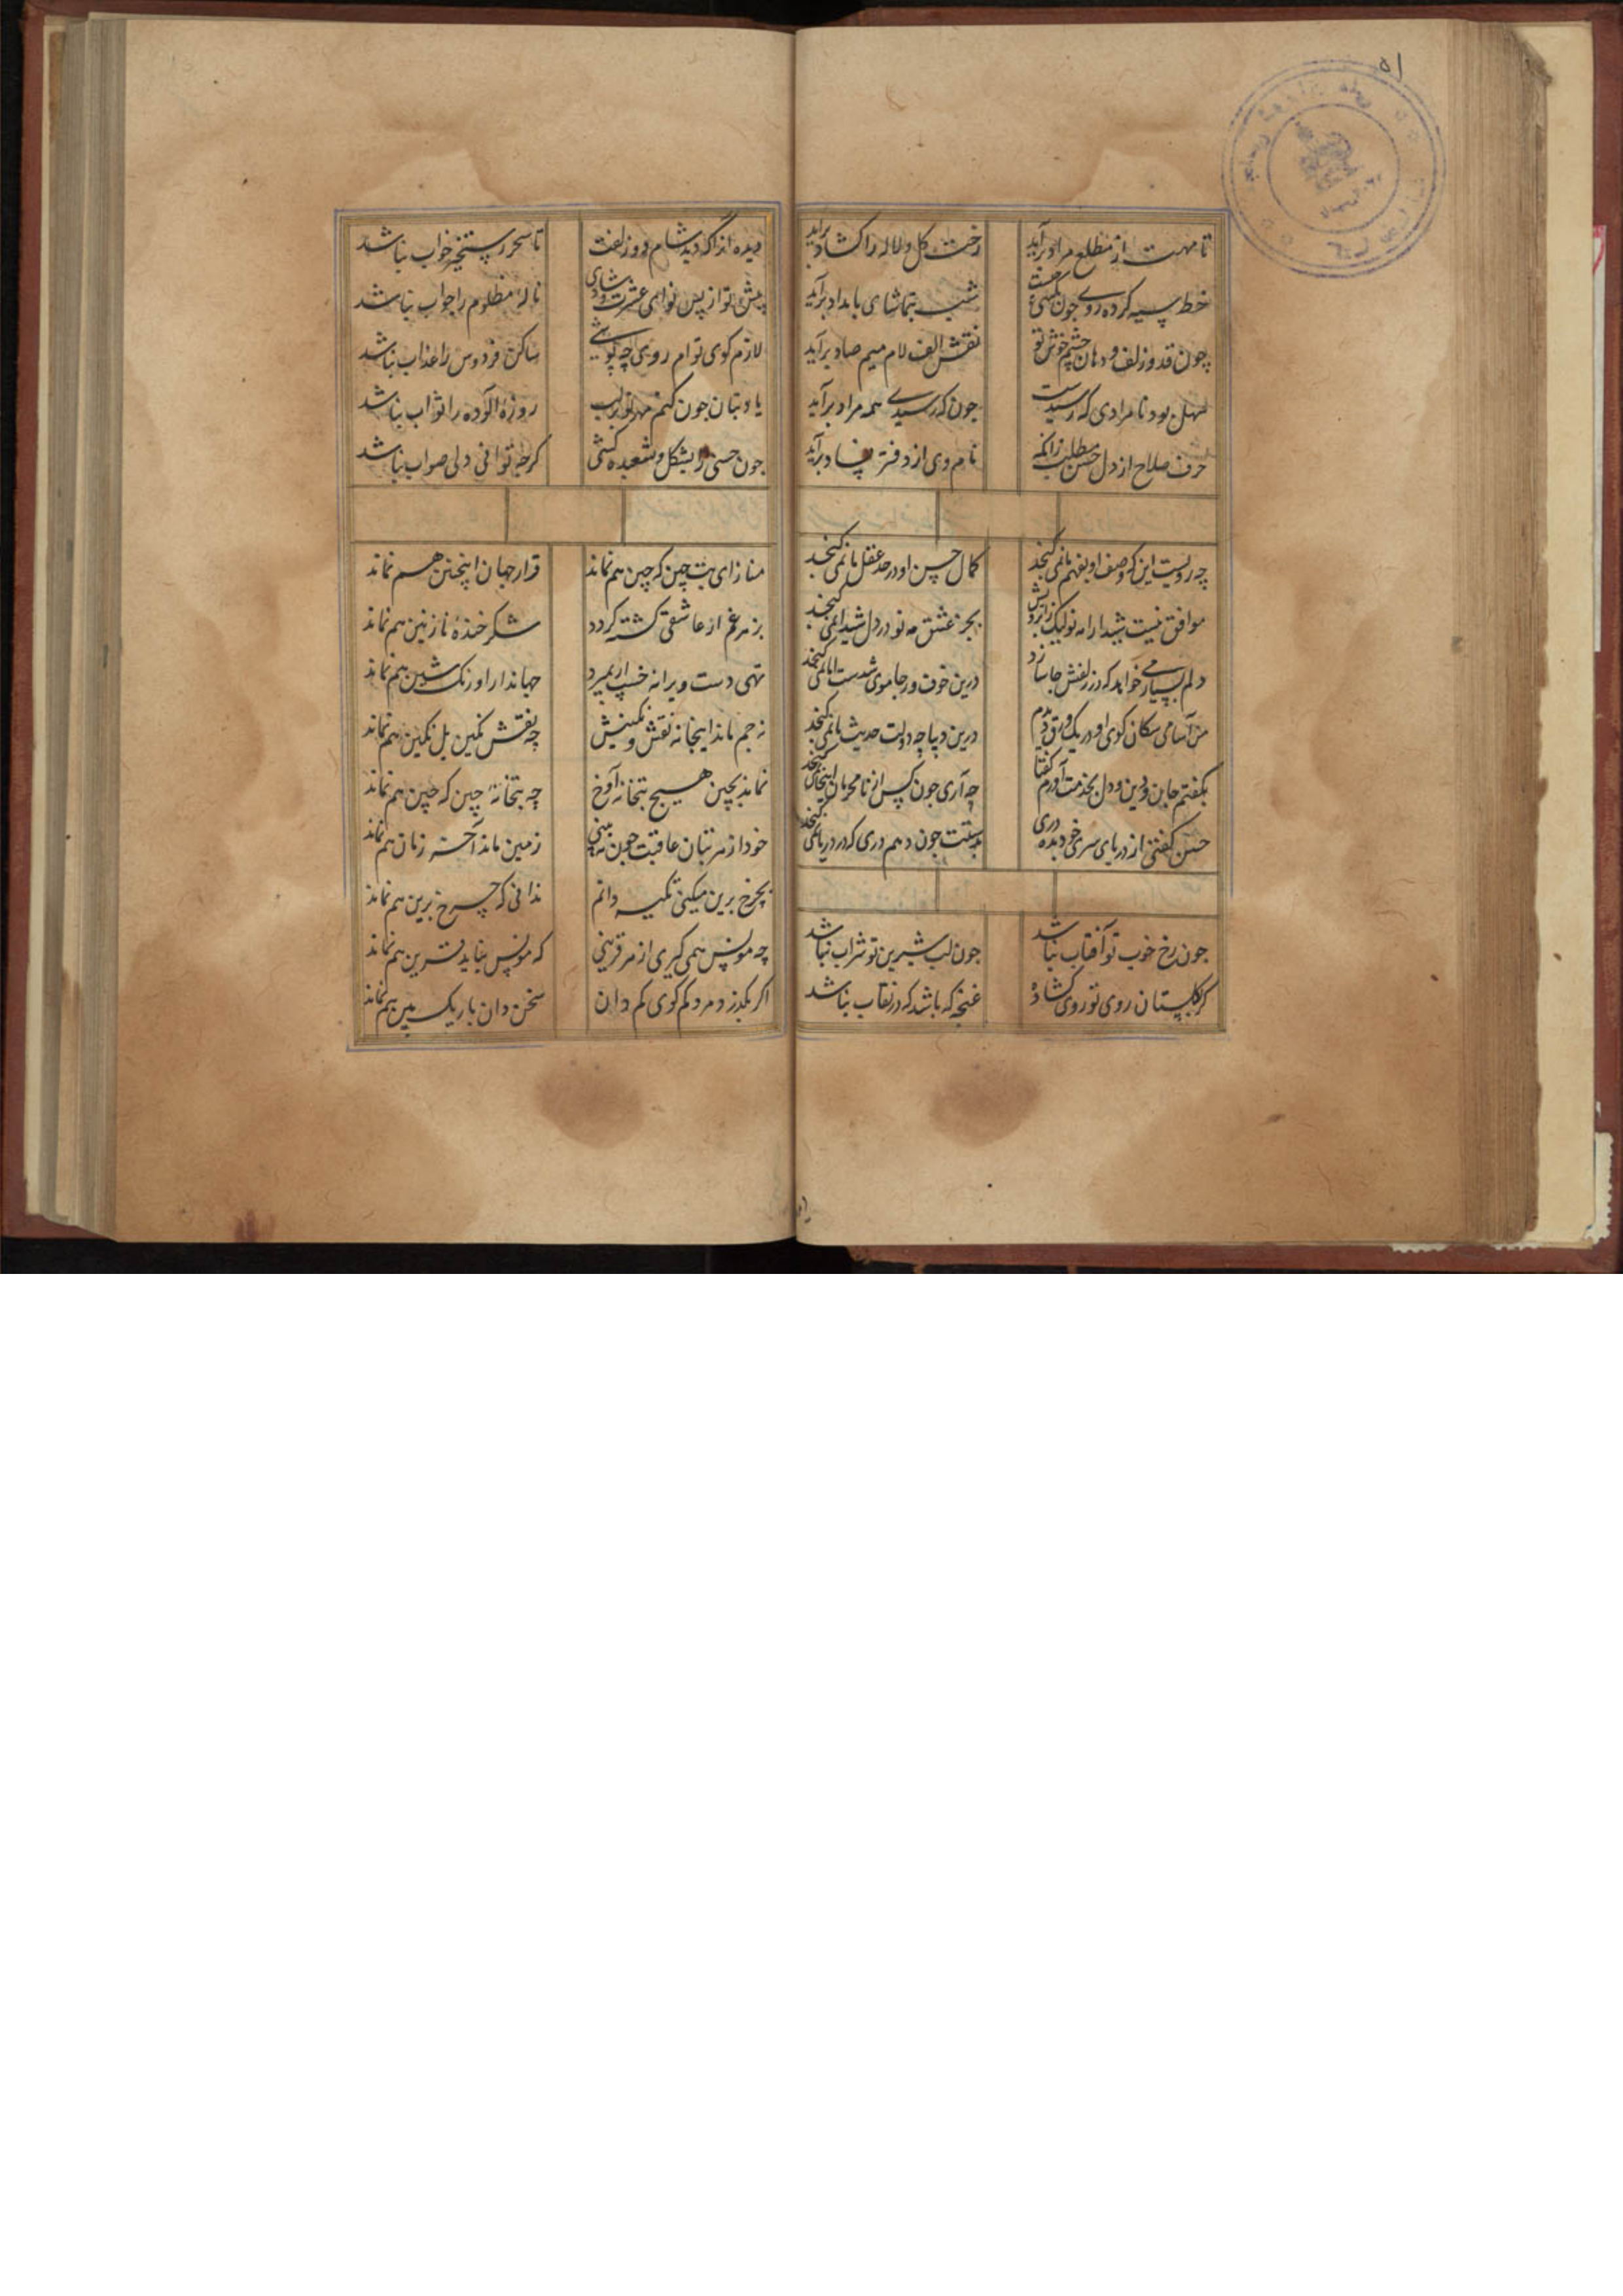 ۵۱
تا مهرت از مطلع مراد برآید رخت گل و لاله را کشاد برآید
خط سیه کرده روی جون شب بتماشای بامداد برآید
چون قد و زلف و دهان چشم خوش تو نقش الف لام میم صاد برآید
سهل بود نامرادی که رسیدست جون که رسیدی همه مراد برآید
حرف صلاح از دل حسن مطلب زانکه نام وی از دفتر فساد برآید
چه رویست این که وصف او بفهم ما نمی کنجد کمال حسن او در حد عقل ما نمی کنجد
موافق نیست شیدا را مه نو لیک زابرویش بجز عشق مه نو در دل شیدا نمی کنجد
دلم بسیار می خواهد که در زلفش جا سازد درین خوف و رجا موی شدست اما نمی کنجد
من اسامی سکان کوی او در یک ورق دیدم درین دیباچه دولت حدیث ما نمی کنجد
بکفتم جان و دین و دل بخدمت آورم کفتا چه آری جون کس از نامحرمان اینجا نمی کنجد
حسن کفتی از دریای سری خود بده دری بدستت جون دهم دری که در دریا نمی کنجد
جون رخ خوب تو آفتاب نباشد جون لب شیرین تو شراب نباشد
کر کلستان روی تو روی کشاده غنچه که باشد که در نقاب نباشد
دیده از اکر دید شام دو زلفت تا سحر رستخیز خواب نباشد
پیش تو از پس نوای عشرت و شادی نالهٔ مظلوم را جواب نباشد
لازم کوی توام روی چه پوشی ساکن فردوس را عذاب نباشد
یاد بتان جون کنم مهر تو بر لب روزهٔ آلوده را ثواب نباشد
جون حسنی را بشکل و شعبده کشتی کرچه توانی ولی صواب نباشد
مناز ای بت چین که چین هم نماند قرار جهان اینچنین هم نماند
بزهر غم ار عاشقی کشته کردد شکر خندهٔ نازنین هم نماند
تهی دست ویرانه خسپ ار بمیرد جهاندار اورنک نشین هم نماند
نه جم ماند اینجا نه نقش نکینش چه نقش نکین بل نکین هم نماند
نماند بچین هیچ بتخانه آوخ چه بتخانهٔ چین که چین هم نماند
خود از مه بتان عاقبت جون نه بینی زمین ماند آخر زمان هم نماند
بچرخ برین میکنی تکیه دانم ندانی که چرخ برین هم نماند
چه مونس همی کیری از هر قرینی که مونس نباید قرین هم نماند
اکر بکذرد مرد کم کوی کم دان سخن دان باریک بین هم نماند